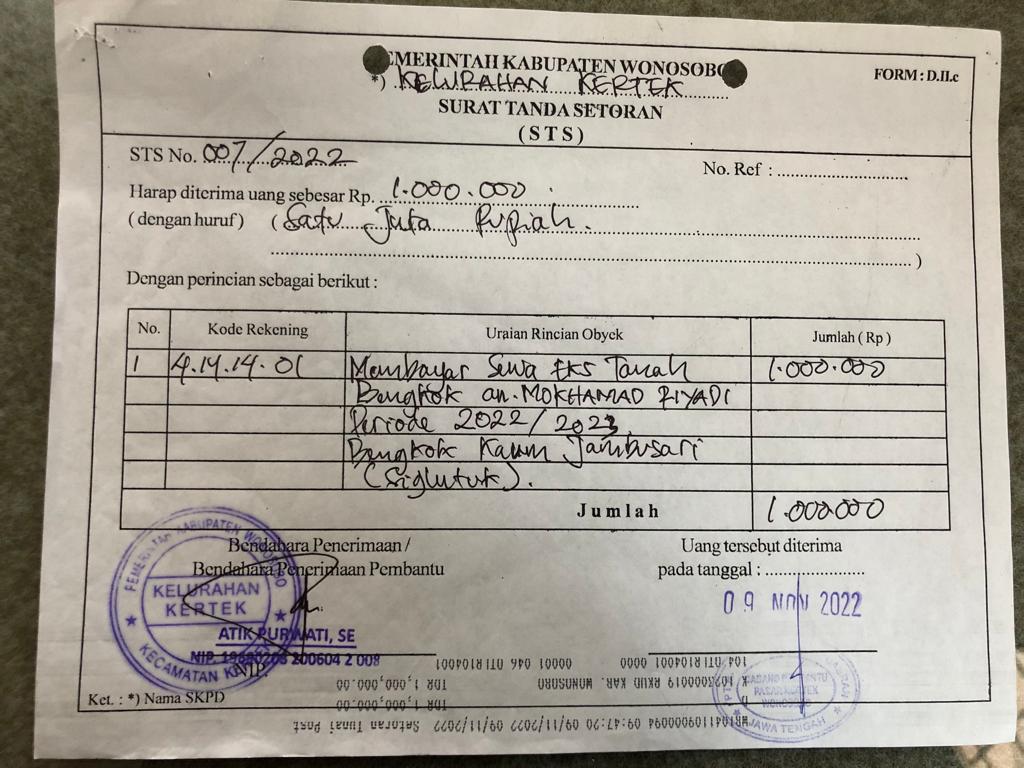 PEMERINTAH KABUPATEN WONOSOBO
*) KELURAHAN KERTEK
FORM : D.II.c
SURAT TANDA SETORAN
( S T S )
STS No. 007/2022
No. Ref : ..............................
Harap diterima uang sebesar Rp. 1.000.000
( dengan huruf ) ( Satu Juta Rupiah.
)
Dengan perincian sebagai berikut :
No. Kode Rekening Uraian Rincian Obyek Jumlah ( Rp )
1 4.14.14.01 Membayar Sewa Eks Tanah 1.000.000
Bengkok an. MOKHAMAD RIYADI
Periode 2022/2023
Bengkok Kaum Jambusari
(Siglutuk).
Jumlah 1.000.000
Bendahara Penerimaan /
Bendahara Penerimaan Pembantu
Uang tersebut diterima
pada tanggal : ........................
09 NOV 2022
PEMERINTAH KABUPATEN WONOSOBO
KELURAHAN
KERTEK
KECAMATAN KERTEK
ATIK PURWATI, SE
NIP. 200604 2 008
NIP.
Ket. : *) Nama SKPD
104 OTI R104001 0000 00001 046 OTI R104001
K 1023000019 RKUD KAB. WONOSOBO
IDR 1,000,000.00
IDR 1,000,000.00
09:47:20 09/11/2022 09/11/2022 Setoran Tunai Post
PASAR KERTEK
WONOSOBO
JAWA TENGAH